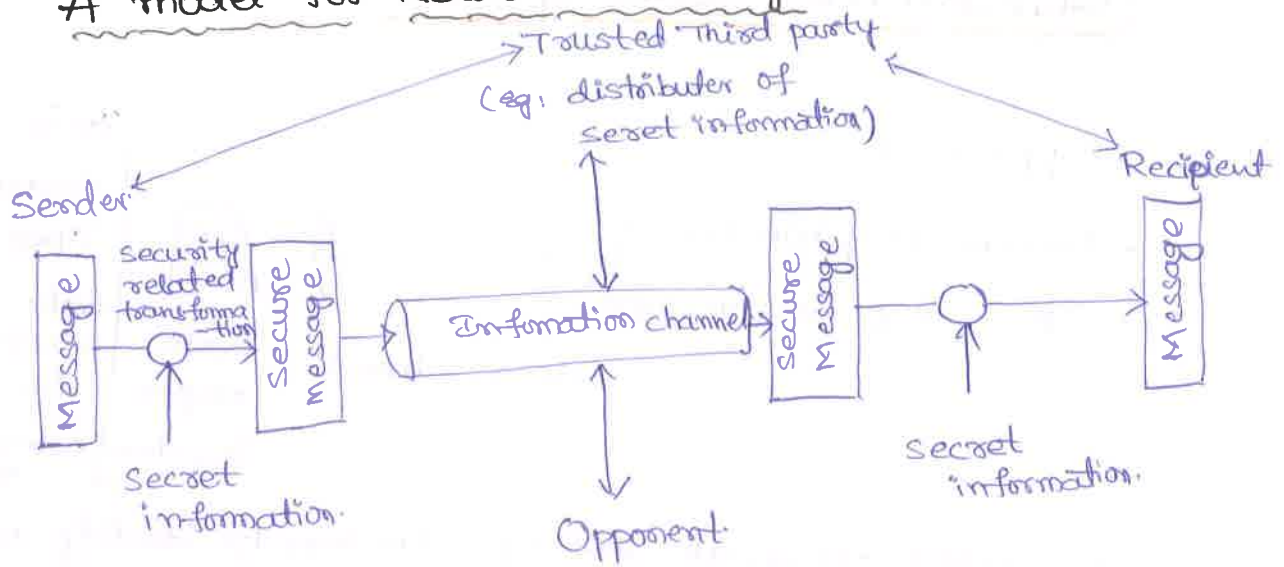 A model for
Trusted Third party
(eg: distributer of
seret information)
Sender
Recipient
Message
security
related
transforma
-tion
Secure
message
Infomation channel
Secure
Message
Message
Secret
information.
Opponent.
Secret
information.